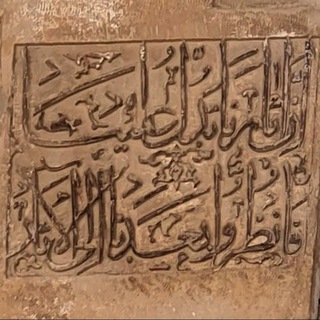 ان اثارنا تدل علينا
فانظروا بعدنا الى الاثار